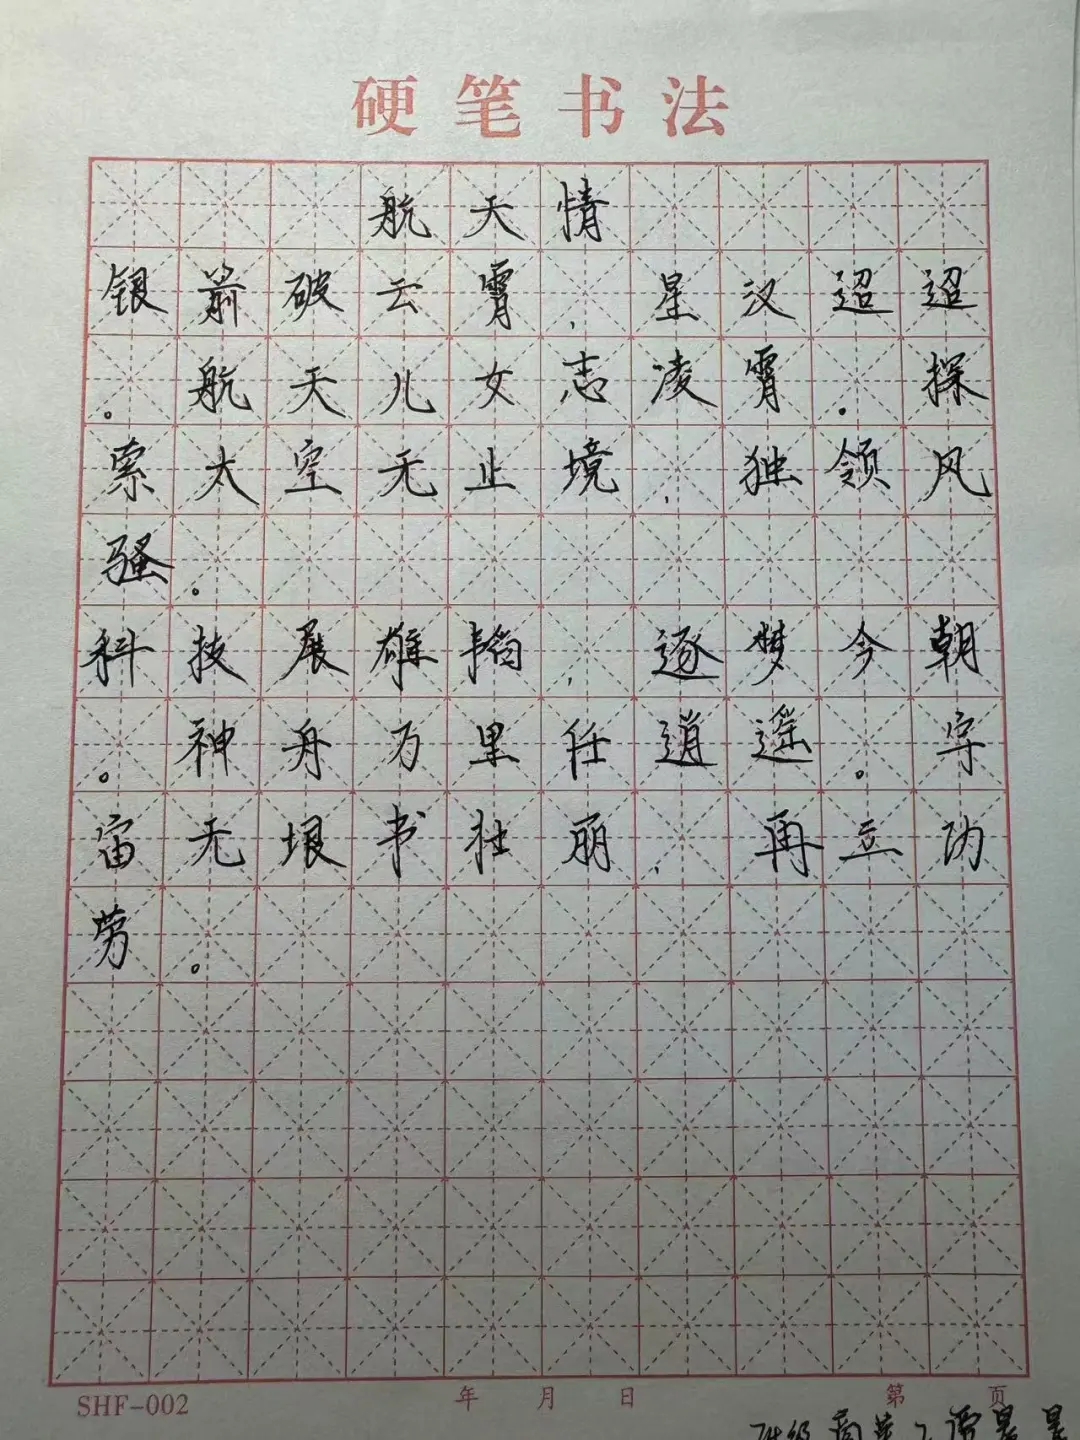 硬笔书法
航天情
银箭破云霄,星汉迢迢
。航天儿女志凌霄。探
索太空无止境,独领风
骚。
科技展雄韬,逐梦今朝
。神舟万里任逍遥。宇
宙无垠书壮丽,再立功
劳。
SHF-002 年 月 日 第 页